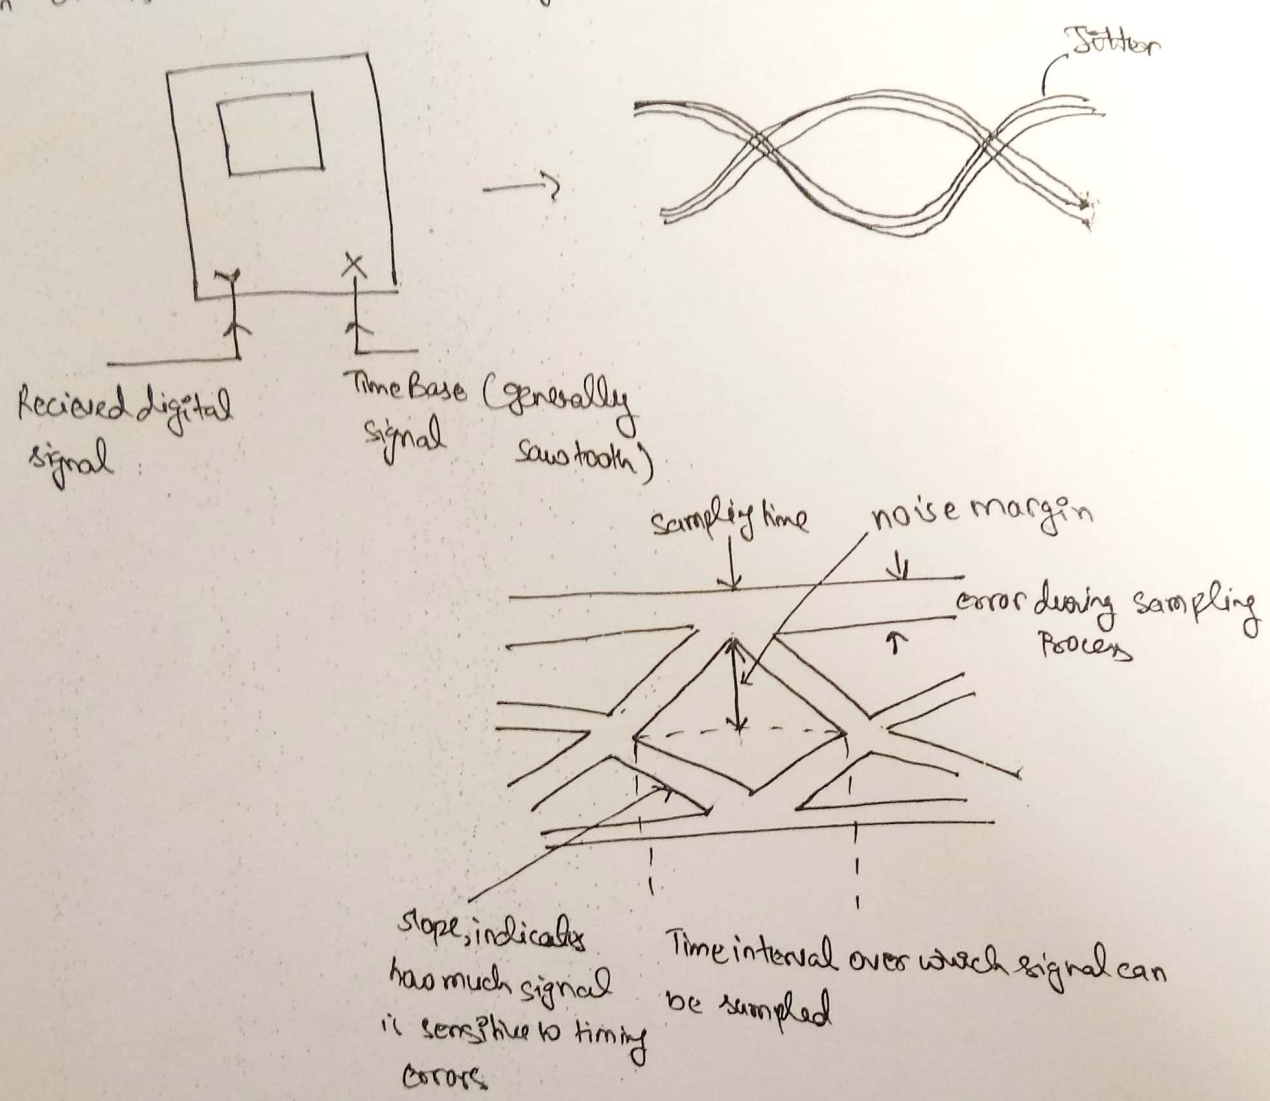 Jitter
Y
X
Recieved digital
signal
Time Base (generally
signal sawtooth)
sampling time
noise margin
error during sampling
Process
slope, indicates
how much signal
is sensitive to timing
errors
Time interval over which signal can
be sampled